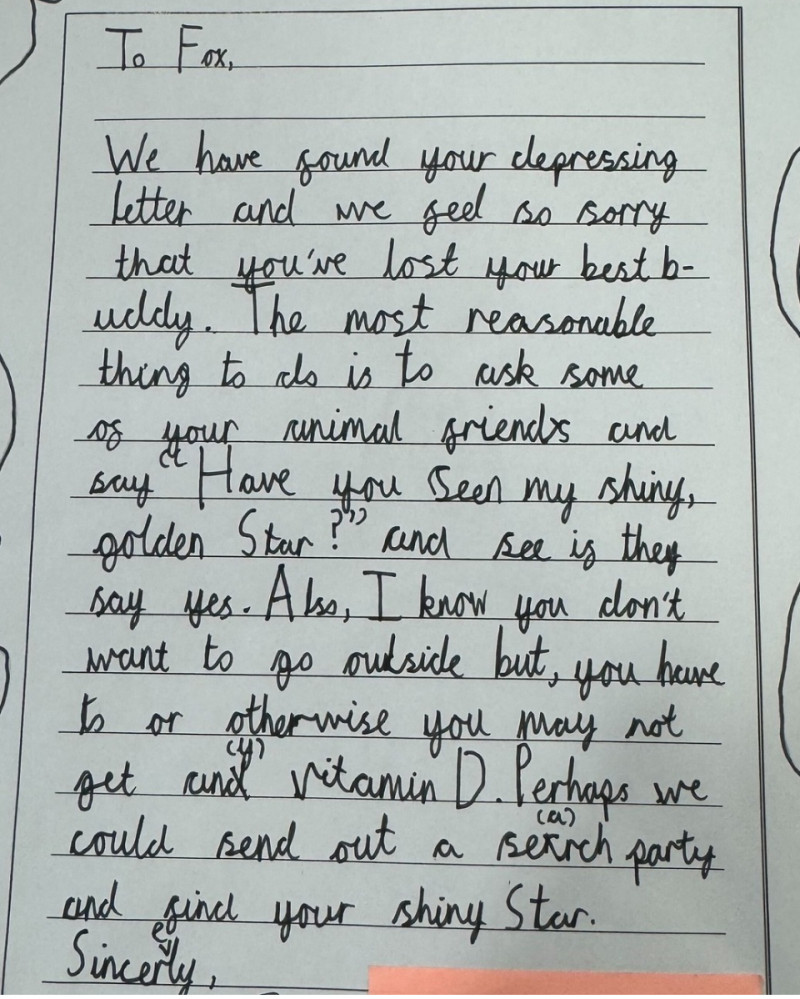 To Fox,
We have found your depressing
letter and we feel so sorry
that you've lost your best b-
uddy. The most reasonable
thing to do is to ask some
of your animal friends and
say "Have you seen my shiny,
golden Star?" and see if they
say yes. Also, I know you don't
want to go outside but, you have
to or otherwise you may not
get any vitamin D. Perhaps we
could send out a search party
and find your shiny Star.
Sincerely,